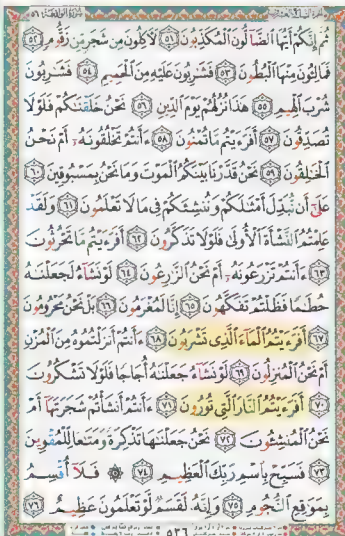 ثُمَّ إِنَّكُمْ أَيُّهَا ٱلضَّآلُّونَ ٱلْمُكَذِّبُونَ ٥١ لَأَكِلُونَ مِن شَجَرٍ مِّن زَقُّومٍ ٥٢
فَمَالِـُٔونَ مِنْهَا ٱلْبُطُونَ ٥٣ فَشَٰرِبُونَ عَلَيْهِ مِنَ ٱلْحَمِيمِ ٥٤ فَشَٰرِبُونَ
شُرْبَ ٱلْهِيمِ ٥٥ هَٰذَا نُزُلُهُمْ يَوْمَ ٱلدِّينِ ٥٦ نَحْنُ خَلَقْنَٰكُمْ فَلَوْلَا
تُصَدِّقُونَ ٥٧ أَفَرَءَيْتُم مَّا تُمْنُونَ ٥٨ ءَأَنتُمْ تَخْلُقُونَهُۥٓ أَمْ نَحْنُ
ٱلْخَٰلِقُونَ ٥٩ نَحْنُ قَدَّرْنَا بَيْنَكُمُ ٱلْمَوْتَ وَمَا نَحْنُ بِمَسْبُوقِينَ ٦٠
عَلَىٰٓ أَن نُّبَدِّلَ أَمْثَٰلَكُمْ وَنُنشِئَكُمْ فِى مَا لَا تَعْلَمُونَ ٦١ وَلَقَدْ
عَلِمْتُمُ ٱلنَّشْأَةَ ٱلْأُولَىٰ فَلَوْلَا تَذَكَّرُونَ ٦٢ أَفَرَءَيْتُم مَّا تَحْرُثُونَ
٦٣ ءَأَنتُمْ تَزْرَعُونَهُۥٓ أَمْ نَحْنُ ٱلزَّٰرِعُونَ ٦٤ لَوْ نَشَآءُ لَجَعَلْنَٰهُ
حُطَٰمًا فَظَلْتُمْ تَفَكَّهُونَ ٦٥ إِنَّا لَمُغْرَمُونَ ٦٦ بَلْ نَحْنُ مَحْرُومُونَ
٦٧ أَفَرَءَيْتُمُ ٱلْمَآءَ ٱلَّذِى تَشْرَبُونَ ٦٨ ءَأَنتُمْ أَنزَلْتُمُوهُ مِنَ ٱلْمُزْنِ
أَمْ نَحْنُ ٱلْمُنزِلُونَ ٦٩ لَوْ نَشَآءُ جَعَلْنَٰهُ أُجَاجًا فَلَوْلَا تَشْكُرُونَ
٧٠ أَفَرَءَيْتُمُ ٱلنَّارَ ٱلَّتِى تُورُونَ ٧١ ءَأَنتُمْ أَنشَأْتُمْ شَجَرَتَهَآ أَمْ
نَحْنُ ٱلْمُنشِـُٔونَ ٧٢ نَحْنُ جَعَلْنَٰهَا تَذْكِرَةً وَمَتَٰعًا لِّلْمُقْوِينَ
٧٣ فَسَبِّحْ بِٱسْمِ رَبِّكَ ٱلْعَظِيمِ ٧٤ ۞ فَلَآ أُقْسِمُ
بِمَوَٰقِعِ ٱلنُّجُومِ ٧٥ وَإِنَّهُۥ لَقَسَمٌ لَّوْ تَعْلَمُونَ عَظِيمٌ ٧٦
٥٣٦